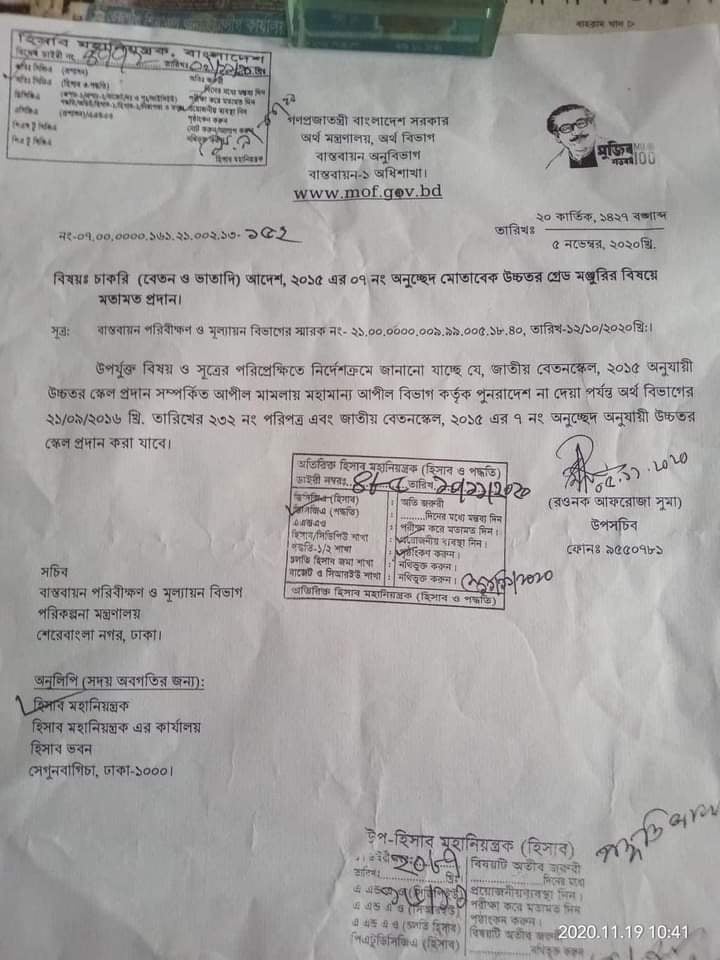 হিসাব মহানিয়ন্ত্রক, বাংলাদেশ
হিসাব মহানিয়ন্ত্রক
গণপ্রজাতন্ত্রী বাংলাদেশ সরকার
অর্থ মন্ত্রণালয়, অর্থ বিভাগ
বাস্তবায়ন অনুবিভাগ
বাস্তবায়ন-১ অধিশাখা।
www.mof.gov.bd
মুজিব
শতবর্ষ 100
নং-০৭,০০,০০০০,১৬১,২১,০০২,১৩- ১৫২
২০ কার্তিক, ১৪২৭ বঙ্গাব্দ
তারিখঃ
৫ নভেম্বর, ২০২০খ্রি.
বিষয়ঃ চাকরি (বেতন ও ভাতাদি) আদেশ, ২০১৫ এর ০৭ নং অনুচ্ছেদ মোতাবেক উচ্চতর গ্রেড মঞ্জুরির বিষয়ে
মতামত প্রদান।
সূত্র: বাস্তবায়ন পরিবীক্ষণ ও মূল্যায়ন বিভাগের স্মারক নং- ২১.০০.০০০০.০০৯.৯৯.০০৫.১৮.৪০, তারিখ-১২/১০/২০২০খ্রি:।
উপর্যুক্ত বিষয় ও সূত্রের পরিপ্রেক্ষিতে নির্দেশক্রমে জানানো যাচ্ছে যে, জাতীয় বেতনস্কেল, ২০১৫ অনুযায়ী
উচ্চতর স্কেল প্রদান সম্পর্কিত আপীল মামলায় মহামান্য আপীল বিভাগ কর্তৃক পুনরাদেশ না দেয়া পর্যন্ত অর্থ বিভাগের
২১/০৯/২০১৬ খ্রি. তারিখের ২৩২ নং পরিপত্র এবং জাতীয় বেতনস্কেল, ২০১৫ এর ৭ নং অনুচ্ছেদ অনুযায়ী উচ্চতর
স্কেল প্রদান করা যাবে।
০৫.১১.২০২০
(রওনক আফরোজা সুমা)
উপসচিব
ফোনঃ ৯৫৫০৭৮১
অতিরিক্ত হিসাব মহানিয়ন্ত্রক (হিসাব ও পদ্ধতি)
ডাইরী নম্বরঃ তারিখ
ডিসিজিএ (হিসাব) : অতি জরুরী
ডিসিজিএ (পদ্ধতি) : দিনের মধ্যে মন্তব্য দিন
: পরীক্ষা করে মতামত দিন
হিসাব/সিডিপিইউ শাখা : প্রয়োজনীয় ব্যবস্থা নিন।
পদ্ধতি-১/২ শাখা : পৃষ্ঠাংকণ করুন।
চলতি হিসাব জমা শাখা : নথিভুক্ত করুন।
বাজেট ও সিআরইউ শাখা : নথিভুক্ত করুন।
অতিরিক্ত হিসাব মহানিয়ন্ত্রক (হিসাব ও পদ্ধতি)
সচিব
বাস্তবায়ন পরিবীক্ষণ ও মূল্যায়ন বিভাগ
পরিকল্পনা মন্ত্রণালয়
শেরেবাংলা নগর, ঢাকা।
অনুলিপি (সদয় অবগতির জন্য):
হিসাব মহানিয়ন্ত্রক
হিসাব মহানিয়ন্ত্রক এর কার্যালয়
হিসাব ভবন
সেগুনবাগিচা, ঢাকা-১০০০।
উপ-হিসাব মহানিয়ন্ত্রক (হিসাব)
বিষয়টি অতীব জরুরী
দিনের মধ্যে
প্রয়োজনীয়ব্যবস্থা নিন।
পরীক্ষা করে মতামত দিন
পৃষ্ঠাংকন করুন।
বিষয়টি অতীব জরুরী
নথিভুক্ত করুন
2020.11.19 10:41